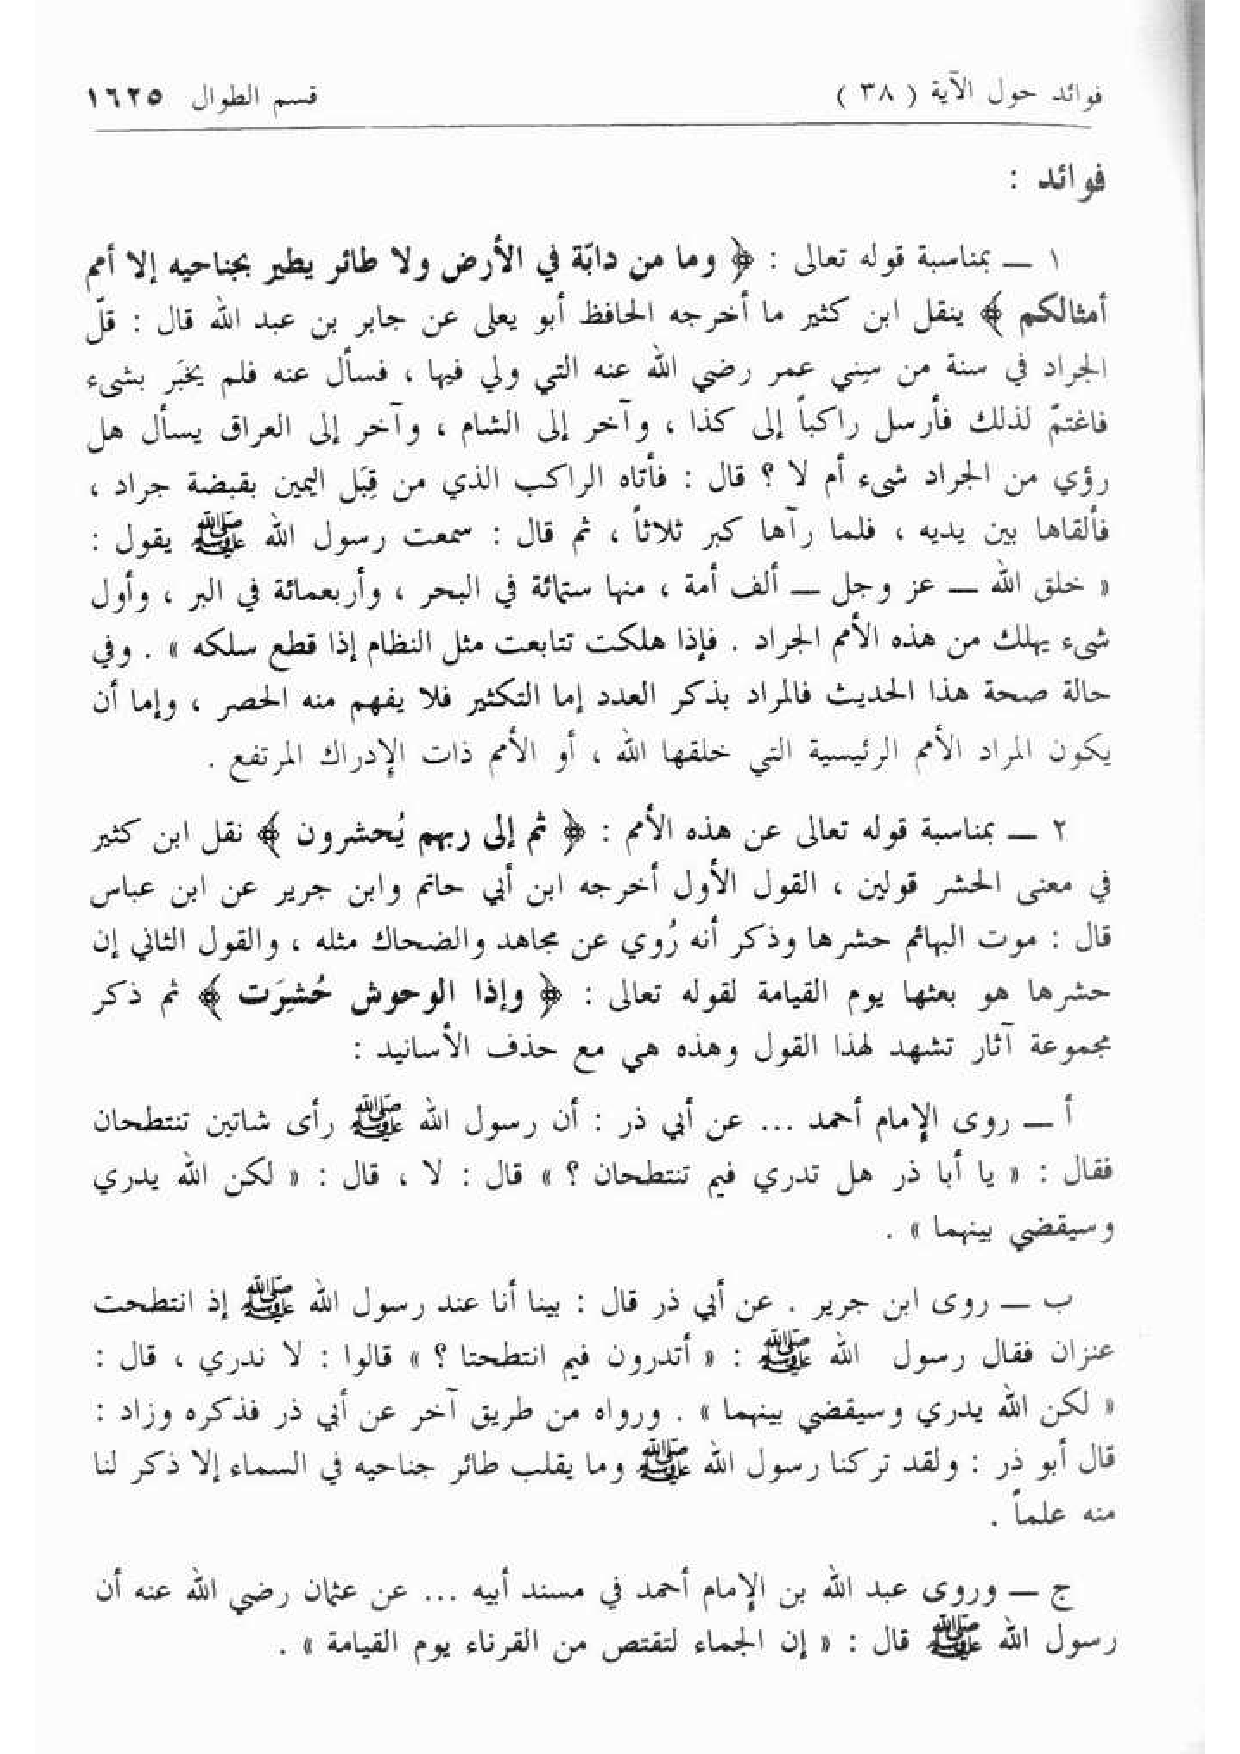 فوائد حول الآية ( ٣٨ )
قسم الطوال ١٦٢٥
فوائد :
١ ـ بمناسبة قوله تعالى : ﴿ وما من دابّة في الأرض ولا طائر يطير بجناحيه إلا أمم
أمثالكم ﴾ ينقل ابن كثير ما أخرجه الحافظ أبو يعلى عن جابر بن عبد الله قال : قلّ
الجراد في سنة من سِني عمر رضي الله عنه التي ولي فيها ، فسأل عنه فلم يخبَر بشىء
فاغتمّ لذلك فأرسل راكباً إلى كذا ، وآخر إلى الشام ، وآخر إلى العراق يسأل هل
رؤي من الجراد شىء أم لا ؟ قال : فأتاه الراكب الذي من قِبَل اليمين بقبضة جراد ،
فألقاها بين يديه ، فلما رآها كبر ثلاثاً ، ثم قال : سمعت رسول الله ﷺ يقول :
« خلق الله ـ عز وجل ـ ألف أمة ، منها ستمائة في البحر ، وأربعمائة في البر ، وأول
شىء يهلك من هذه الأمم الجراد . فإذا هلكت تتابعت مثل النظام إذا قطع سلكه » . وفي
حالة صحة هذا الحديث فالمراد بذكر العدد إما التكثير فلا يفهم منه الحصر ، وإما أن
يكون المراد الأمم الرئيسية التي خلقها الله ، أو الأمم ذات الإدراك المرتفع .
٢ ـ بمناسبة قوله تعالى عن هذه الأمم : ﴿ ثم إلى ربهم يُحشرون ﴾ نقل ابن كثير
في معنى الحشر قولين ، القول الأول أخرجه ابن أبي حاتم وابن جرير عن ابن عباس
قال : موت البهائم حشرها وذكر أنه رُوي عن مجاهد والضحاك مثله ، والقول الثاني إن
حشرها هو بعثها يوم القيامة لقوله تعالى : ﴿ وإذا الوحوش حُشِرَت ﴾ ثم ذكر
مجموعة آثار تشهد لهذا القول وهذه هي مع حذف الأسانيد :
أ ـ روى الإمام أحمد ... عن أبي ذر : أن رسول الله ﷺ رأى شاتين تنتطحان
فقال : « يا أبا ذر هل تدري فيم تنتطحان ؟ » قال : لا ، قال : « لكن الله يدري
وسيقضي بينهما » .
ب ـ روى ابن جرير . عن أبي ذر قال : بينا أنا عند رسول الله ﷺ إذ انتطحت
عنزان فقال رسول الله ﷺ : « أتدرون فيم انتطحتا ؟ » قالوا : لا ندري ، قال :
« لكن الله يدري وسيقضي بينهما » . ورواه من طريق آخر عن أبي ذر فذكره وزاد :
قال أبو ذر : ولقد تركنا رسول الله ﷺ وما يقلب طائر جناحيه في السماء إلا ذكر لنا
منه علماً .
ج ـ وروى عبد الله بن الإمام أحمد في مسند أبيه ... عن عثمان رضي الله عنه أن
رسول الله ﷺ قال : « إن الجماء لتقتص من القرناء يوم القيامة » .